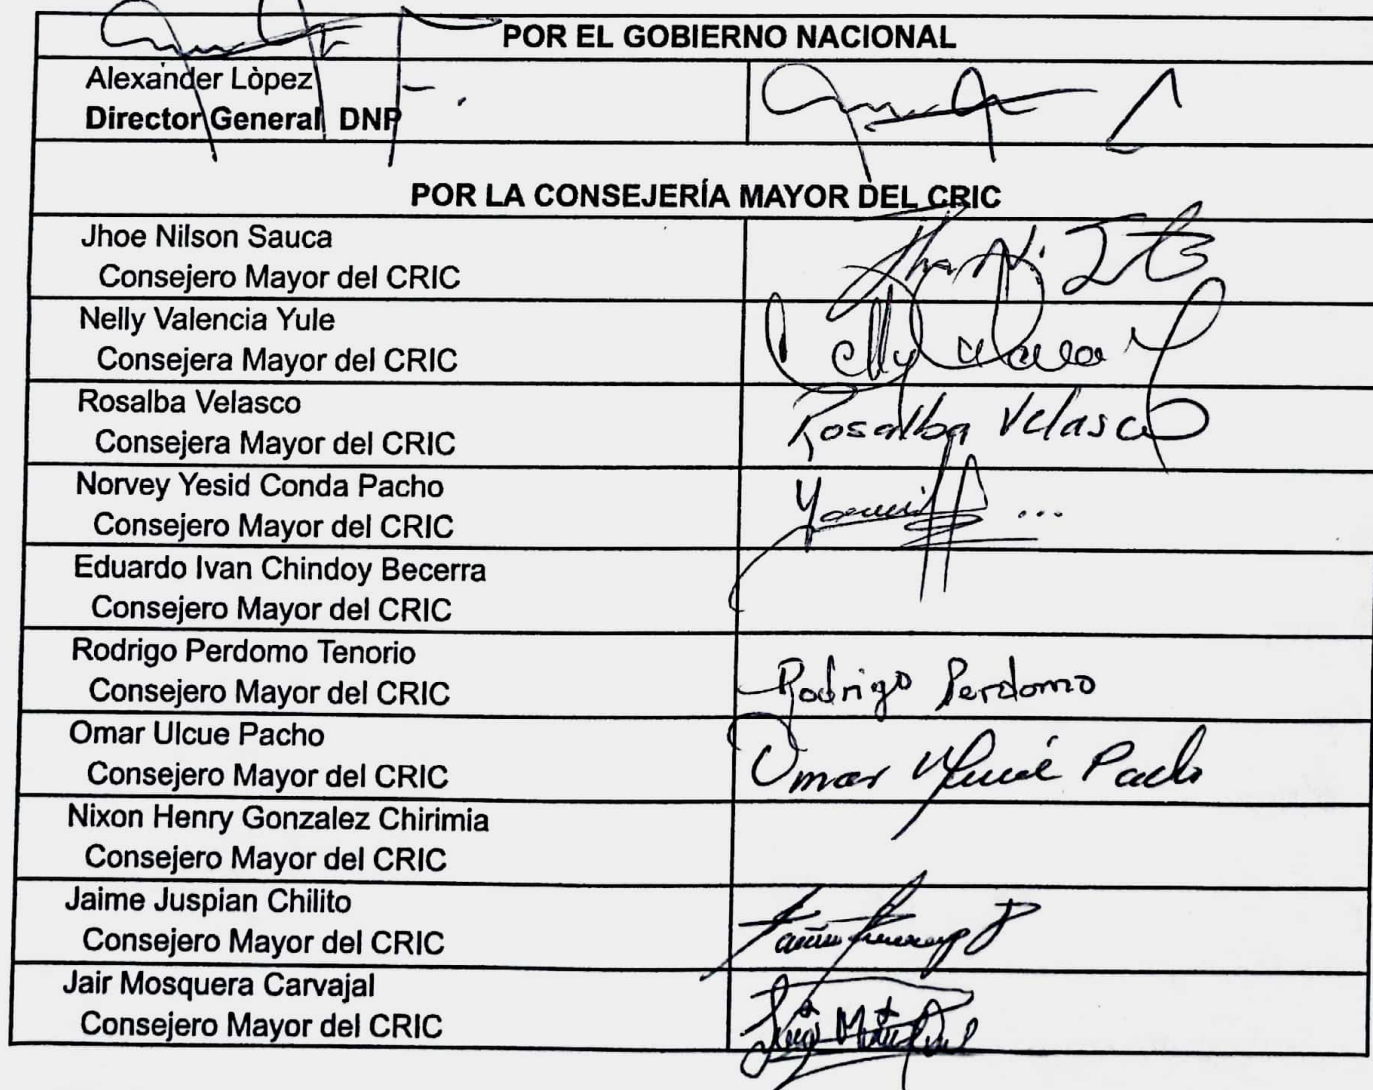 POR EL GOBIERNO NACIONAL
Alexander Lòpez
Director General DNP
POR LA CONSEJERÍA MAYOR DEL CRIC
Jhoe Nilson Sauca
Consejero Mayor del CRIC
Nelly Valencia Yule
Consejera Mayor del CRIC
Rosalba Velasco
Consejera Mayor del CRIC
Rosalba Velasco
Norvey Yesid Conda Pacho
Consejero Mayor del CRIC
Eduardo Ivan Chindoy Becerra
Consejero Mayor del CRIC
Rodrigo Perdomo Tenorio
Consejero Mayor del CRIC
Rodrigo Perdomo
Omar Ulcue Pacho
Consejero Mayor del CRIC
Omar Ulcué Pacho
Nixon Henry Gonzalez Chirimia
Consejero Mayor del CRIC
Jaime Juspian Chilito
Consejero Mayor del CRIC
Jair Mosquera Carvajal
Consejero Mayor del CRIC